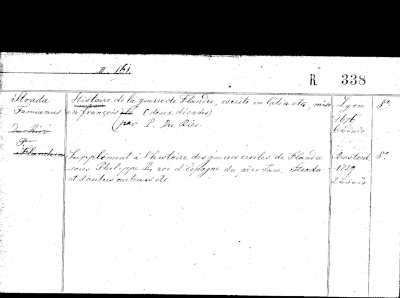 II. 161.
R 338
Strada Histoire de la guerre de Flandre, escrite en latin etc, mise Lyon 8º
Famianus en françois (deux décades) 1676
par P. Du Rier.
Supplément à l'histoire des guerres civiles de Flandre Amsterd. 8º
sous Philippe II, roi d'Espagne du père Fam. Strada 1729
et d'autres auteurs etc